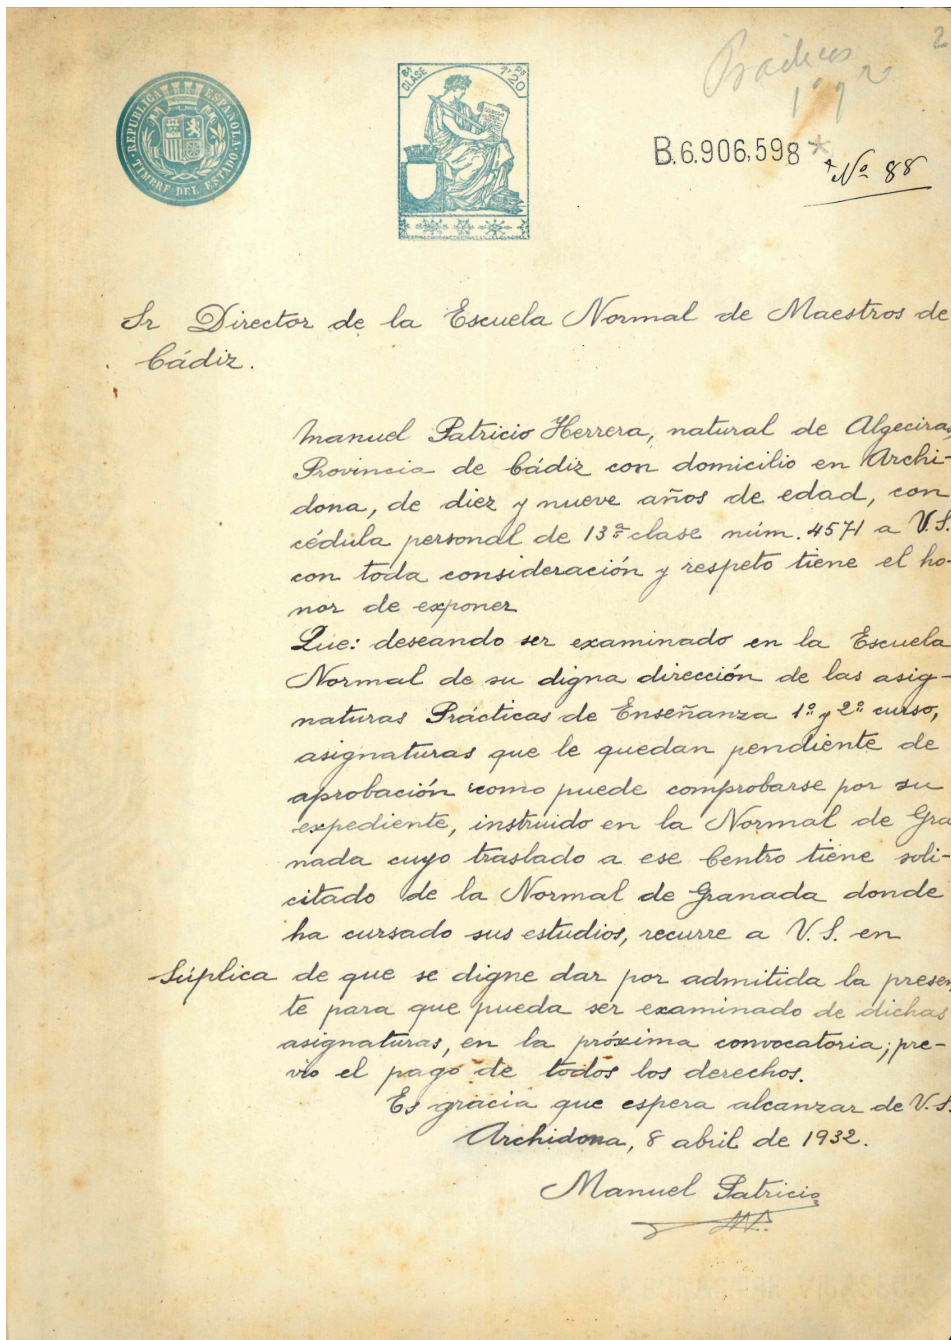 2
Prácticas
1º y 2º
REPUBLICA ESPAÑOLA
TIMBRE DEL ESTADO
8ª CLASE
1'20
B.6.906,598 *
Nº 88
Sr Director de la Escuela Normal de Maestros de
Cádiz.
Manuel Patricio Herrera, natural de Algeciras,
Provincia de Cádiz con domicilio en Archi-
dona, de diez y nueve años de edad, con
cédula personal de 13ª clase núm. 4571 a V.S.
con toda consideración y respeto tiene el ho-
nor de exponer
Que: deseando ser examinado en la Escuela
Normal de su digna dirección de las asig-
naturas Prácticas de Enseñanza 1º y 2º curso,
asignaturas que le quedan pendiente de
aprobación como puede comprobarse por su
expediente, instruido en la Normal de Gra
nada cuyo traslado a ese Centro tiene soli-
citado de la Normal de Granada donde
ha cursado sus estudios, recurre a V.S. en
Súplica de que se digne dar por admitida la presen
te para que pueda ser examinado de dichas
asignaturas, en la próxima convocatoria; pre-
vio el pago de todos los derechos.
Es gracia que espera alcanzar de V.S.
Archidona, 8 abril de 1932.
Manuel Patricio